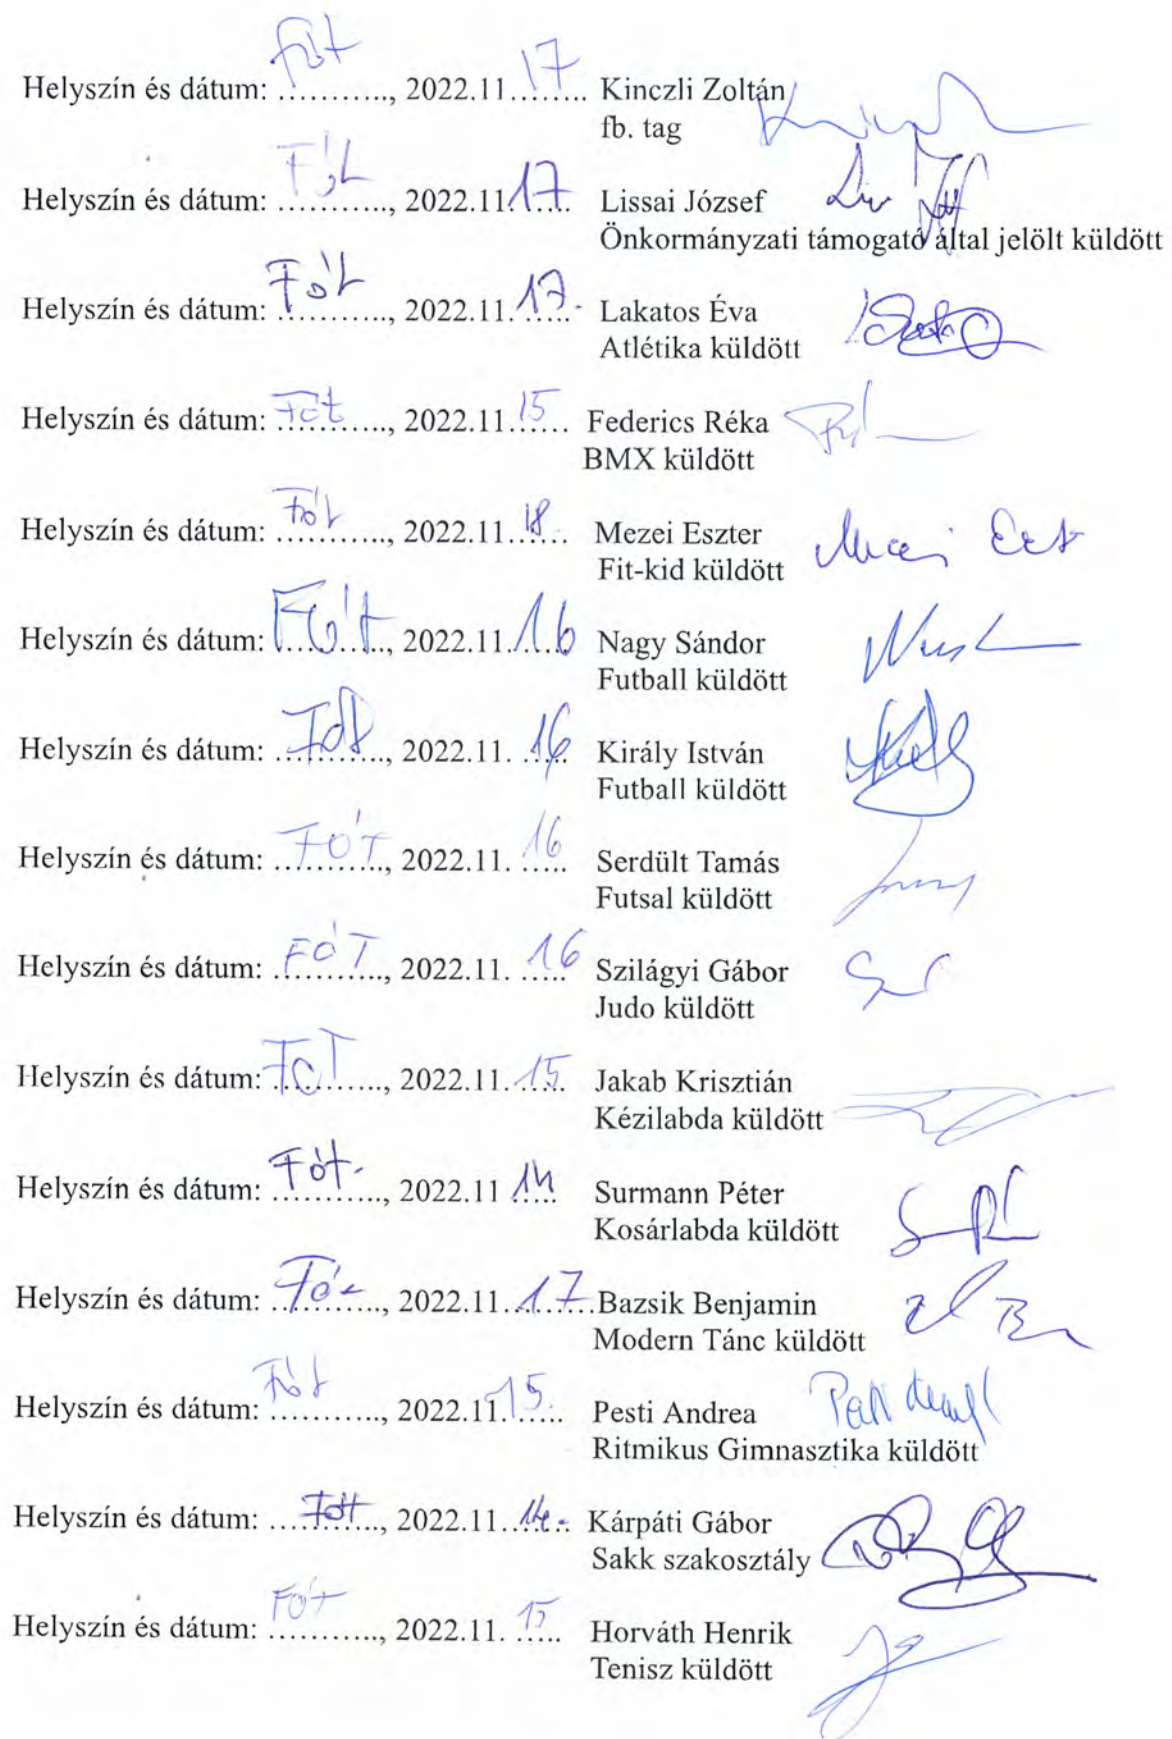 Helyszín és dátum: Fót, 2022.11.17 Kinczli Zoltán
fb. tag
Helyszín és dátum: Fót, 2022.11.17 Lissai József
Önkormányzati támogató által jelölt küldött
Helyszín és dátum: Fót, 2022.11.17. Lakatos Éva
Atlétika küldött
Helyszín és dátum: Fót, 2022.11.15 Federics Réka
BMX küldött
Helyszín és dátum: Fót, 2022.11.18. Mezei Eszter
Fit-kid küldött
Helyszín és dátum: Fót, 2022.11.16 Nagy Sándor
Futball küldött
Helyszín és dátum: Fót, 2022.11.16 Király István
Futball küldött
Helyszín és dátum: FÓT, 2022.11.16 Serdült Tamás
Futsal küldött
Helyszín és dátum: FÓT, 2022.11.16 Szilágyi Gábor
Judo küldött
Helyszín és dátum: FÓT, 2022.11.15. Jakab Krisztián
Kézilabda küldött
Helyszín és dátum: Fót, 2022.11 14 Surmann Péter
Kosárlabda küldött
Helyszín és dátum: Fót, 2022.11.17 Bazsik Benjamin
Modern Tánc küldött
Helyszín és dátum: Fót, 2022.11.15. Pesti Andrea
Ritmikus Gimnasztika küldött
Helyszín és dátum: Fót, 2022.11.14. Kárpáti Gábor
Sakk szakosztály
Helyszín és dátum: Fót, 2022.11.15 Horváth Henrik
Tenisz küldött